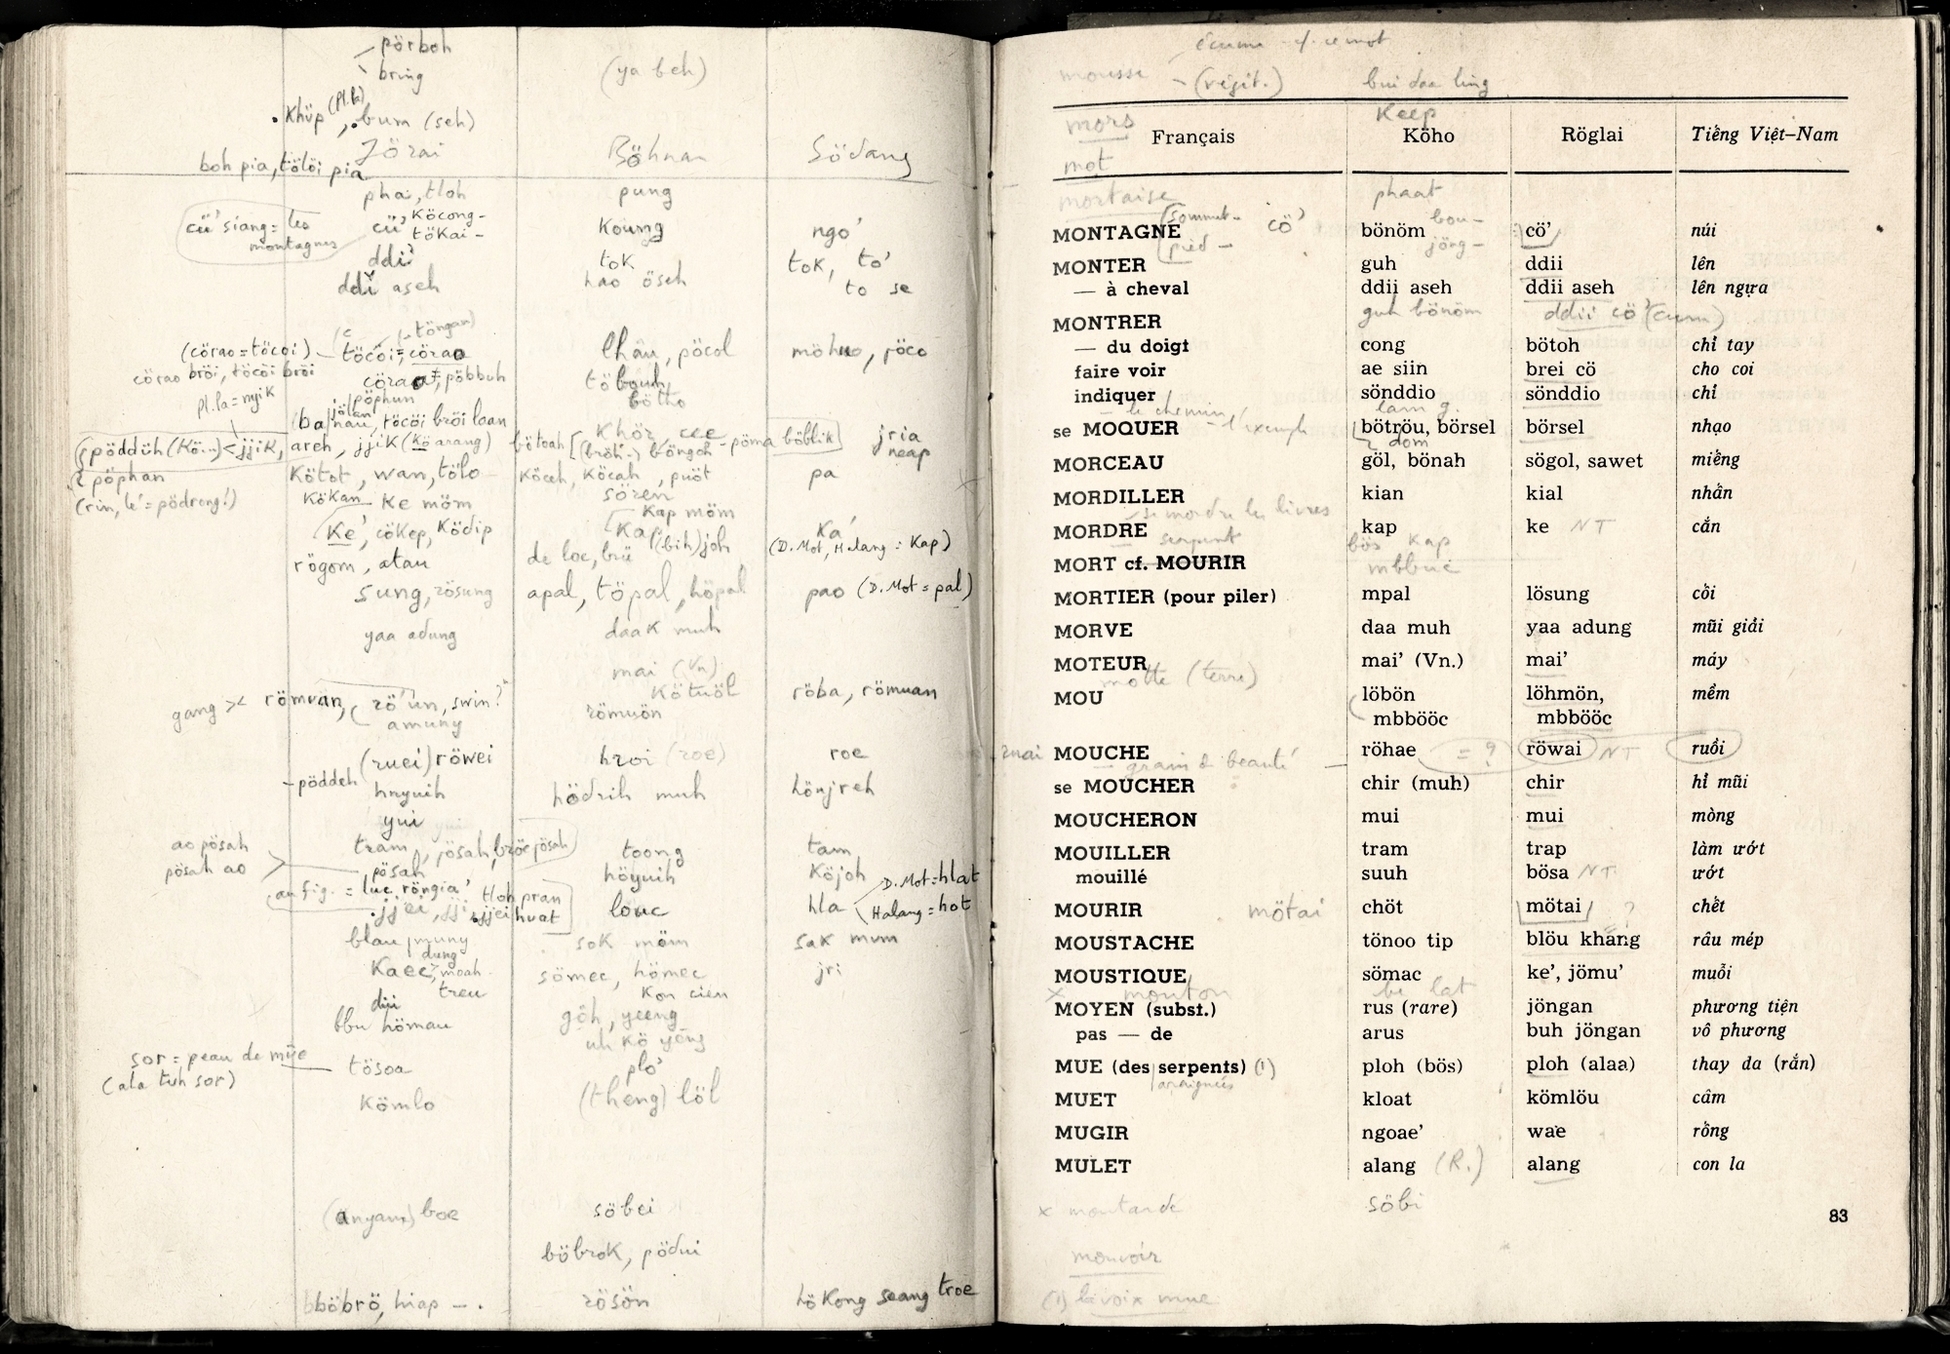 pörboh
bring
(ya beh)
Khüp (Pl.la), bum (seh)
Jörai Böhnar Södang
boh pia, tölöi pia
pha, tloh pung
cü' siang = les montagnes
cü', köcong- tökai- koung ngo'
ddi' tok tok, to'
ddi aseh hao öseh to se
(töngan)
(cörao = töcoi) töcoi = cörao lhâu, pöcol möhno, jöco
cörao bröi, töcöi bröi
pöbbuh töbouh
Pl.la = nyik pöphun bötho
töcöi bröi laan
(pödduh (Kö...) < jjik, areh, jjik (kö arang) bötoah böngoh - pöma böblik jria neap
pöphan Kötot, wan, tölo Köceh, Köcah, puöt pa
sören
(rin, le' = pödrong!) kökan ke möm Kap möm
Ke', cökep, Ködip Kap (bih) joh Ka'
(D. Mot, Halang = Kap)
rögom, atau de loc, brü
sung, rösung apal, töpal, höpal pao (D. Mot = pal)
yaa adung daak muh
mai (Vn)
Kötuöl
gang >< römuan, rö'un, swin? römuön röba, römuan
amuny
(ruei) röwei hroi (roe) roe
- pöddeh hnyuih hödrih muh hönjreh
yui
ao pösah tram, jösah, bröe jösah toong tam
pösah ao pösah höyuih Köjoh
D. Mot = hlat
au fig. = luc röngia' tloh pran
jjei, jjei huat louc hla Halang = hot
blau muny sok möm sak mum
dung
Kaec, moah sömec, hömec jri
treu Kon cien
dui
bbu hömau göh, yeeng
uh kö yöng
sor = peau de mue
(ala tuh sor) tösoa plo'
kömlo (theng) löl
(anyam) boe söbei
böbrok, pödui
bböbrö, hiap - . rösön hö Kong seang troe
écume cf. ce mot
mousse (végét.) bui daa ling
mors Keep
Français Köho Röglai Tiếng Việt-Nam
mot
mortaise phaat
MONTAGNE sommet- pied - cö' bönöm bou- jöng- cö' núi
MONTER guh ddii lên
— à cheval ddii aseh ddii aseh lên ngựa
MONTRER guh bönöm ddii cö' (cum)
— du doigt cong bötoh chỉ tay
faire voir ae siin brei cö cho coi
indiquer sönddio sönddio chỉ
- le chemin, l'exemple lam g.
se MOQUER bötröu, börsel börsel nhạo
dom
MORCEAU göl, bönah sögol, sawet miếng
MORDILLER kian kial nhấn
- se mordre les lèvres
MORDRE kap ke NT cắn
serpent bös kap
MORT cf. MOURIR mbbuc
MORTIER (pour piler) mpal lösung cối
MORVE daa muh yaa adung mũi giải
MOTEUR mai' (Vn.) mai' máy
motte (terre)
MOU löbön löhmön, mềm
mbbööc mbbööc
ruai MOUCHE röhae = ? röwai NT ruồi
— grain de beauté
se MOUCHER chir (muh) chir hỉ mũi
MOUCHERON mui mui mòng
MOUILLER tram trap làm ướt
mouillé suuh bösa NT ướt
MOURIR mötai chöt mötai ? chết
MOUSTACHE tönoo tip blöu khang râu mép
MOUSTIQUE sömac ke', jömu' muỗi
x mouton be lat
MOYEN (subst.) rus (rare) jöngan phương tiện
pas — de arus buh jöngan vô phương
MUE (des serpents) (1) ploh (bös) ploh (alaa) thay da (rắn)
araignées
MUET kloat kömlöu câm
MUGIR ngoae' wae rống
MULET alang (R.) alang con la
x moutarde söbi
83
mouvoir
(1) la voix mue